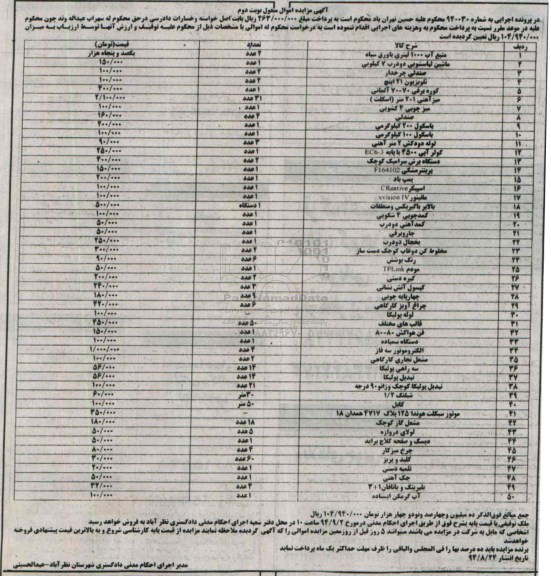 آگهی مزایده اموال منقول نوبت دوم
در پرونده اجرایی به شماره ۹۴۰۰۳۰ محکوم علیه حسین تهران یاد محکوم است به پرداخت مبلغ ۲۶۳/۰۰۰/۰۰۰ ریال بابت اصل خواسته وخسارات دادرسی در حق محکوم له سهراب عبداله وند چون محکوم
علیه در موعد مقرر نسبت به پرداخت محکوم به وهزینه های اجرایی اقدام ننموده است به درخواست محکوم له اموالی با مشخصات ذیل از محکوم علیه توقیف و ارزش آنها توسط ارزیاب به میزان
۱۰۴/۹۴۰/۰۰۰ ریال تعیین گردیده است
ردیف شرح کالا تعداد قیمت(تومان)
۱ منبع آب ۱۰۰۰ لیتری یاوری سیاه ۲ عدد یکصد و پنجاه هزار
۲ ماشین لباسشویی دودرب ۷ کیلویی ۱ عدد ۱۵۰/۰۰۰
۳ صندلی چرخدار ۲ عدد ۱۰۰/۰۰۰
۴ تلویزیون ۲۱ اینچ ۱ عدد ۱۰۰/۰۰۰
۵ کوره برقی ۷۰*۷۰ آلمانی ۱ عدد ۴۰۰/۰۰۰
۶ میز آهنی ۱*۲ متر (اسکلت) ۳۱ عدد ۲/۱۰۰/۰۰۰
۷ میز چوبی ۳ کشویی ۱ عدد ۲۰۰/۰۰۰
۸ صندلی ۴ عدد ۱۶۰/۰۰۰
۹ باسکول ۲۰۰ کیلوگرمی ۱ عدد ۲۰۰/۰۰۰
۱۰ باسکول ۱۰۰ کیلوگرمی ۱ عدد ۱۰۰/۰۰۰
۱۱ لوله دودکش ۲ متر آهنی ۳ عدد ۹۰/۰۰۰
۱۲ کولر آبی ۳۵۰۰ با پایه EC6-3 ۱ عدد ۲۵۰/۰۰۰
۱۳ دستگاه برش سرامیک کوچک ۲ عدد ۴۰۰/۰۰۰
۱۴ پرینتر مشکی F164102 ۱ عدد ۱۵۰/۰۰۰
۱۵ پمپ باد ۱ عدد ۲۰۰/۰۰۰
۱۶ اسپیکر CReative ۱ عدد ۱۰۰/۰۰۰
۱۷ مانیتور xvision IV ۱ عدد ۱۰۰/۰۰۰
۱۸ بالابر باگیربکس ومتعلقات ۱ دستگاه ۵۰۰/۰۰۰
۱۹ کمدچوبی ۴ شکویی ۱ عدد ۱۰۰/۰۰۰
۲۰ کمدآهنی دودرب ۱ عدد ۵۰/۰۰۰
۲۱ جاروبرقی ۱ عدد ۵۰/۰۰۰
۲۲ یخچال دودرب ۱ عدد ۲۵۰/۰۰۰
۲۳ مخلوط کن دوغاب کوچک دست ساز ۲ عدد ۳۰۰/۰۰۰
۲۴ رنگ پوشش ۶ عدد ۹۰/۰۰۰
۲۵ مودم TPLink ۱ عدد ۵۰/۰۰۰
۲۶ گیره دستی ۲ عدد ۲۰۰/۰۰۰
۲۷ کپسول آتش نشانی ۳ عدد ۲۴۰/۰۰۰
۲۸ چهارپایه چوبی ۱ عدد ۱۸۰/۰۰۰
۲۹ چراغ آویز کارگاهی ۶ عدد ۴۲۰/۰۰۰
۳۰ لوله پولیکا – ۱۰۰/۰۰۰
۳۱ قالب های مختلف ۵۰ عدد ۲۵۰/۰۰۰
۳۲ فن هواکش ۸۰*۸۰ ۱ عدد ۱۵۰/۰۰۰
۳۳ دستگاه سمباده ۱ عدد ۱۰۰/۰۰۰
۳۴ الکتروموتور سه فاز ۴ عدد ۱/۰۰۰/۰۰۰
۳۵ مشعل تجاری کارگاهی ۲ عدد ۱۰۰/۰۰۰
۳۶ سه راهی پولیکا ۱۴ عدد ۵۶/۰۰۰
۳۷ تبدیل پولیکا ۱۴ عدد ۵۶/۰۰۰
۳۸ تبدیل پولیکا کوچک وزانو۹۰ درجه ۲۱ عدد ۱۰۰/۰۰۰
۳۹ شیلنگ ۱/۲ ۳۰متر ۶۰/۰۰۰
۴۰ کابل ۵۰متر ۱۰۰/۰۰۰
۴۱ موتور سیکلت هوندا ۱۲۵ پلاک ۲۷۱۷ همدان ۱۸ – ۳۵۰/۰۰۰
۴۲ مشعل گاز کوچک ۱۸ عدد ۱۸۰/۰۰۰
۴۳ لولای دروازه ۵ عدد ۵۰/۰۰۰
۴۴ دیسک و صفحه کلاج پراید ۱ عدد ۵۰/۰۰۰
۴۵ چرخ میز کار ۴ عدد ۸۰/۰۰۰
۴۶ کلید و پریز ۶۰ عدد ۳۰/۰۰۰
۴۷ تلمبه دستی ۱ عدد ۲۰/۰۰۰
۴۸ جک آهنی ۱ عدد ۵۰/۰۰۰
۴۹ بلبرینگ و یاتاقان۱+۳ ۴ عدد ۳۲/۰۰۰
۵۰ آب گرمکن ایستاده ۱ عدد ۱۰۰/۰۰۰
جمع مبالغ فوق‌الذکر ده میلیون وچهارصد ونودو چهار هزار تومان ۱۰۴/۹۴۰/۰۰۰ ریال
ملک توقیفی با قیمت پایه بشرح فوق از طریق اجرای احکام مدنی درمورخ ۹۴/۹/۲ ساعت ۱۰ در محل دفتر شعبه اجرای احکام مدنی دادگستری نظر آباد به فروش خواهد رسید
اشخاصی که مایل به شرکت در مزایده می باشند میتوانند ۵ روز قبل از روزمعین مزایده اموالی را که آگهی گردیده ملاحظه نمایند مزایده از قیمت پایه کارشناسی شروع و به بالاترین قیمت پیشنهادی فروخته
خواهدشد
برنده مزایده باید ده درصد بها را فی المجلس والباقی را ظرف مهلت حداکثر یک ماه پرداخت نماید
تاریخ انتشار ۹۴/۸/۲۴
مدیر اجرای احکام مدنی دادگستری شهرستان نظر آباد-عبدالحسینی